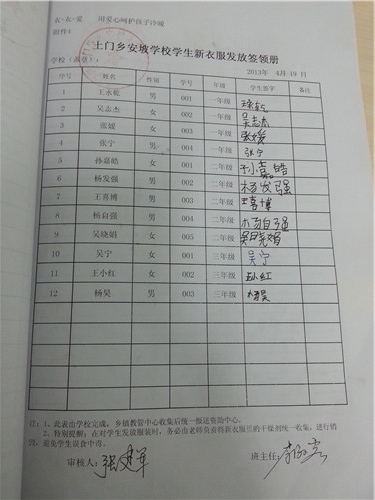 衣·衣·爱 用爱心呵护孩子冷暖
附件4
土门乡安坡学校学生新衣服发放签领册
学校(盖章): 2013年 4月 19日
序号 姓名 性别 学号 年级 学生签字 备注
1 王永乾 男 001 一年级
2 吴志杰 女 002 一年级 吴志杰
3 张媛 女 003 一年级 张媛
4 张宁 男 004 一年级 张宁
5 孙嘉皓 女 001 二年级 孙嘉皓
6 杨发强 男 002 二年级 杨发强
7 王喜博 男 003 二年级 王喜博
8 杨自强 男 004 二年级 杨自强
9 吴晓娟 女 005 二年级 吴晓娟
10 吴宁 女 001 三年级 吴宁
11 王小红 女 002 三年级 王小红
12 杨昊 男 003 三年级 杨昊
注:1、此表由学校完成,乡镇教管中心收集后统一报送资助中心。
2、特别提醒:在对学生发放服装时,务必由老师负责将新衣服里的干燥剂统一收集,进行销
毁,避免学生误食中毒。
审核人: 张建军 班主任: